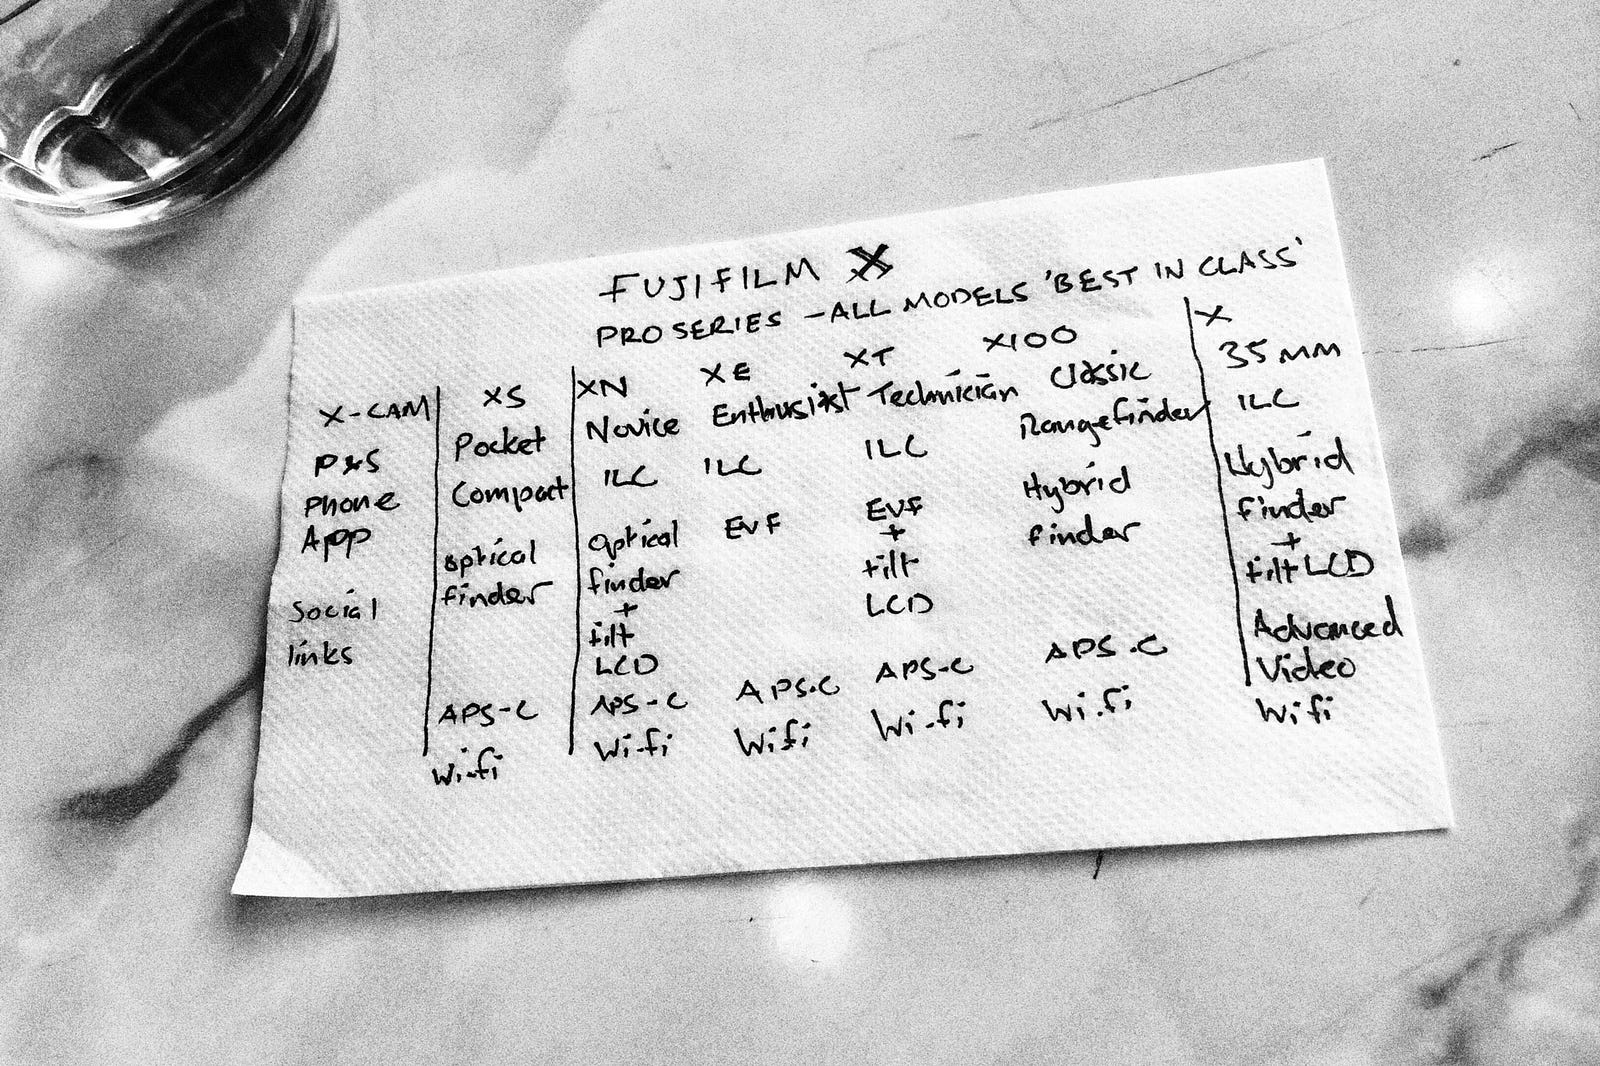 FUJIFILM X
PRO SERIES - ALL MODELS 'BEST IN CLASS'
X-CAM
P&S
Phone
App
Social
links
XS
Pocket
Compact
optical
finder
APS-C
Wi-fi
XN
Novice
ILC
optical
finder
+
tilt
LCD
APS-C
Wi-fi
XE
Enthusiast
ILC
EVF
APS-C
Wifi
XT
Technician
ILC
EVF
+
tilt
LCD
APS-C
Wi-fi
X100
Classic
Rangefinder
Hybrid
finder
APS-C
Wi-fi
X
35mm
ILC
Hybrid
finder
+
tilt LCD
Advanced
Video
Wifi